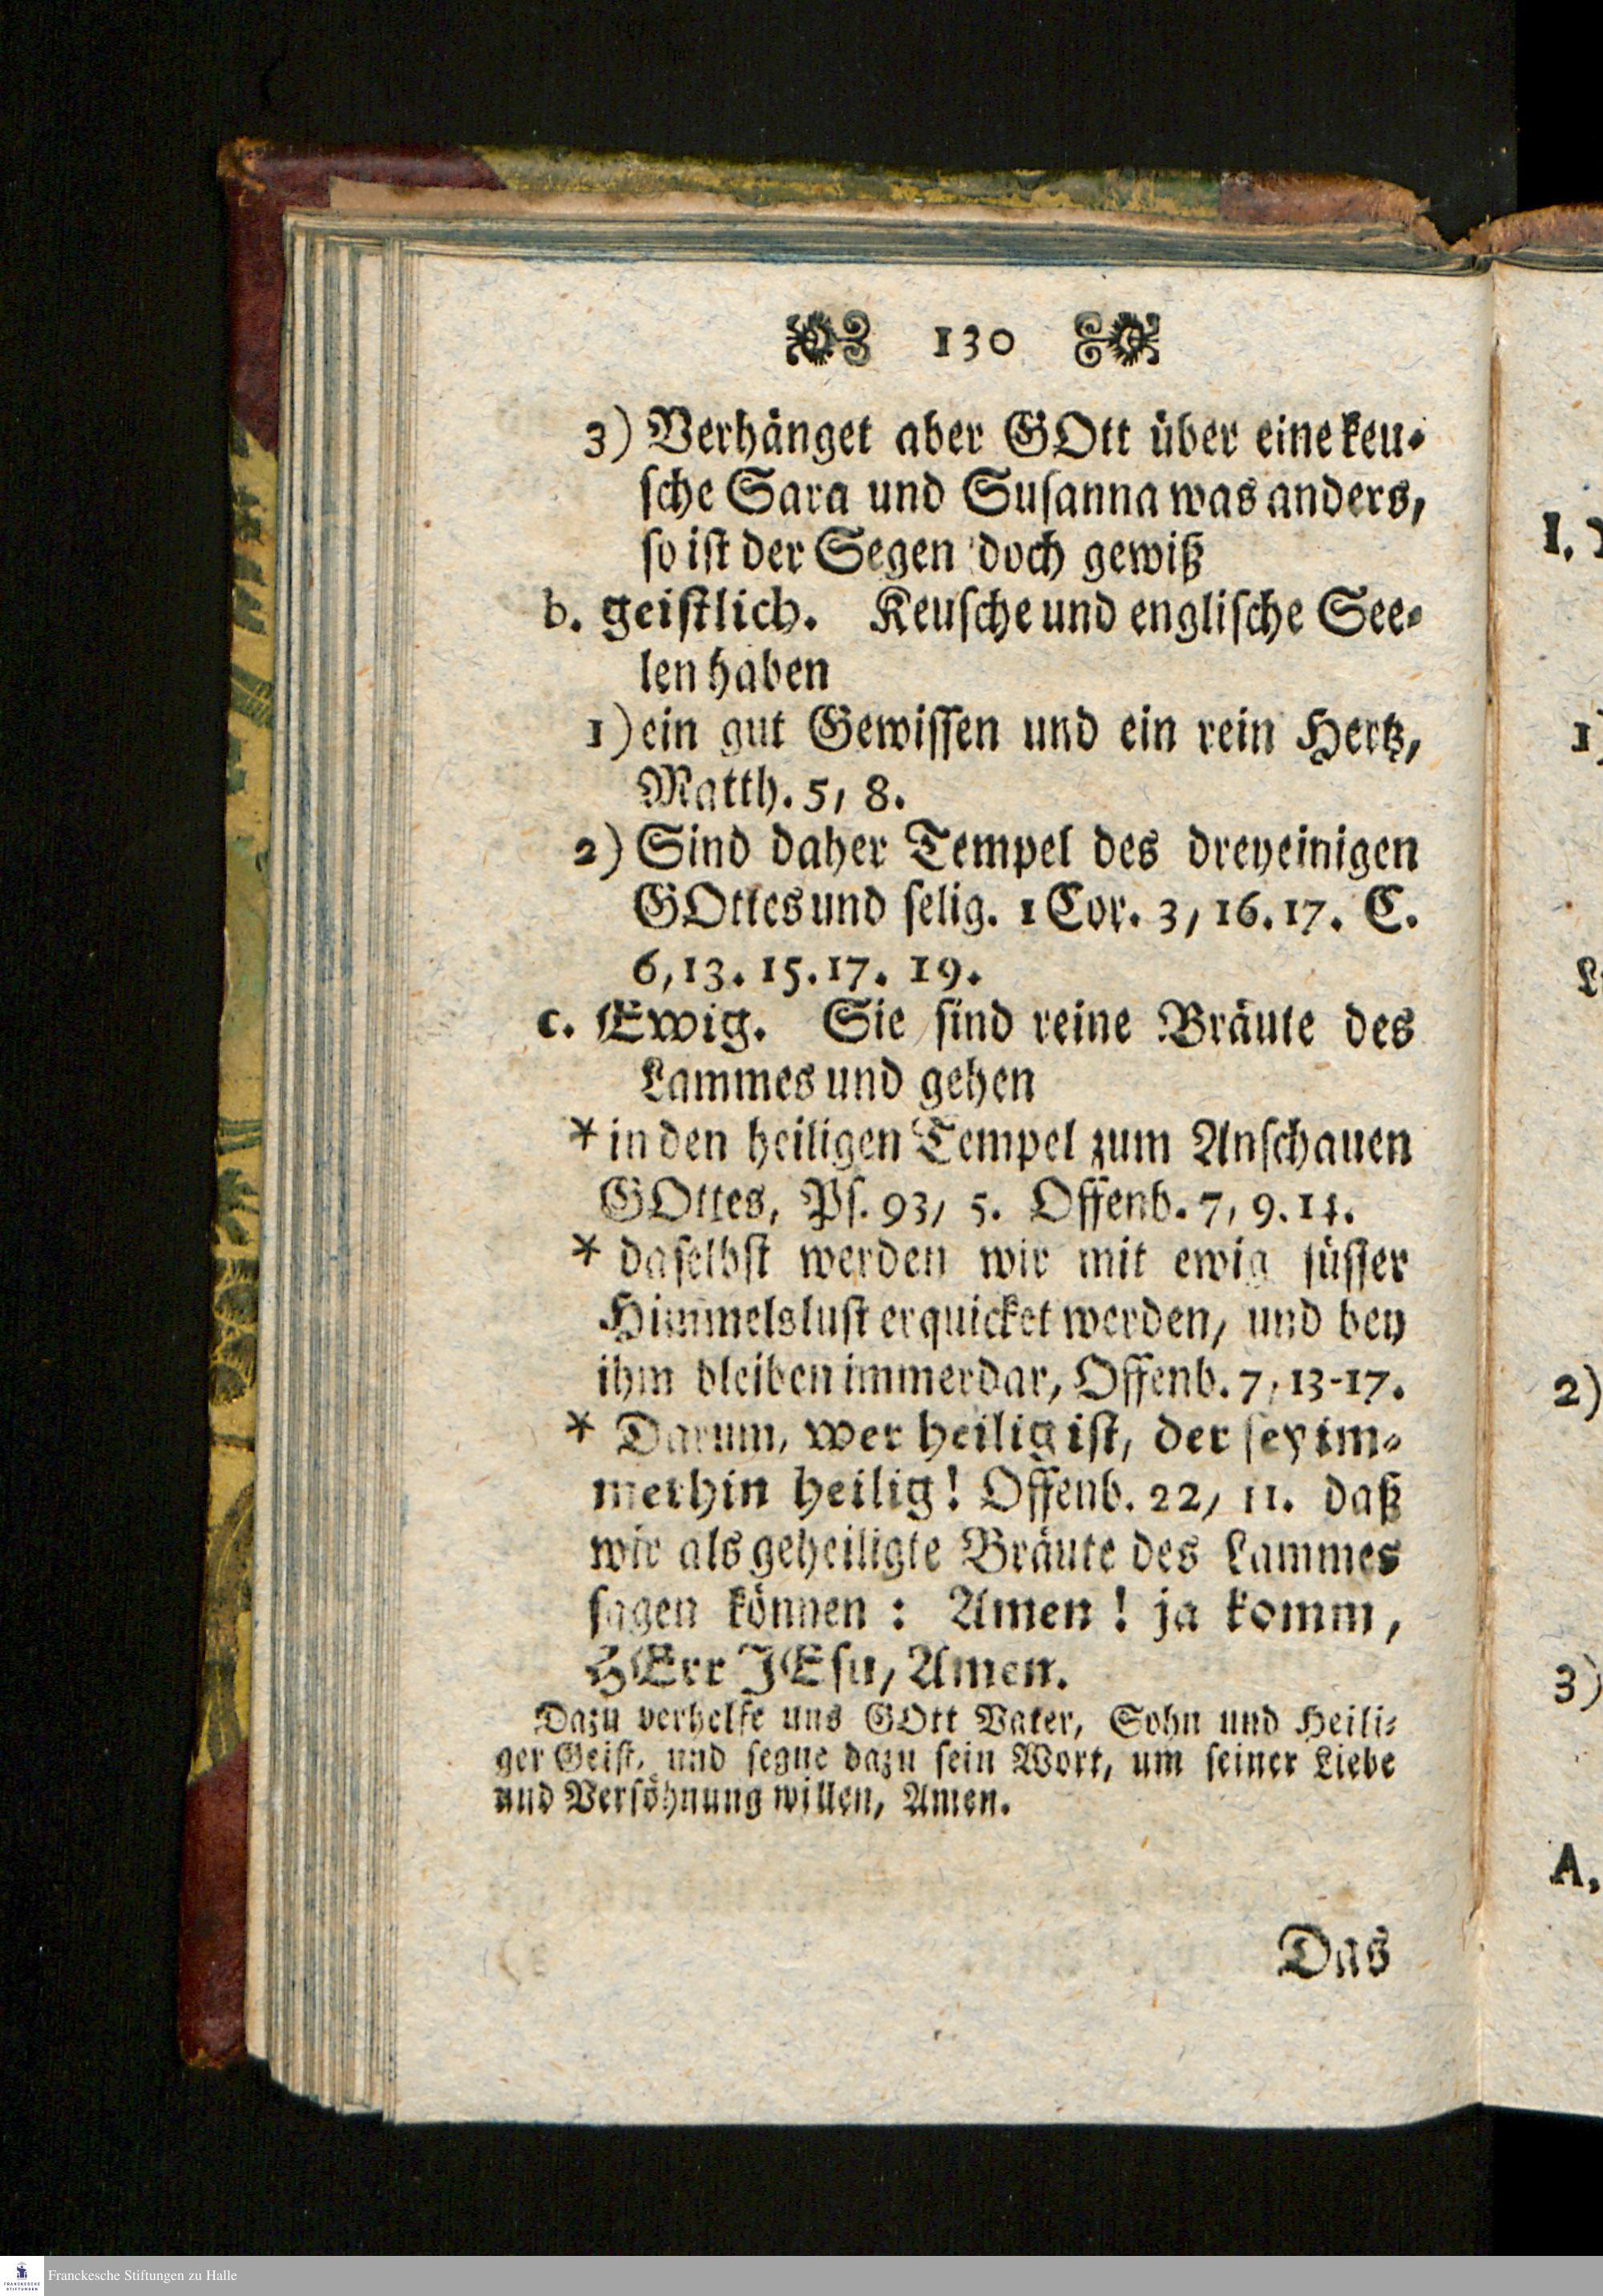 130
3) Verhänget aber GOtt über eine keu-
sche Sara und Susanna was anders,
so ist der Segen doch gewiß
b. geistlich. Keusche und englische See-
len haben
1) ein gut Gewissen und ein rein Hertz,
Matth. 5, 8.
2) Sind daher Tempel des dreyeinigen
GOttes und selig. 1 Cor. 3, 16. 17. C.
6, 13. 15. 17. 19.
c. Ewig. Sie sind reine Bräute des
Lammes und gehen
* in den heiligen Tempel zum Anschauen
GOttes, Ps. 93, 5. Offenb. 7, 9. 14.
* daselbst werden wir mit ewig süsser
Himmelslust erquicket werden, und bey
ihm bleiben immerdar, Offenb. 7, 13-17.
* Darum, wer heilig ist, der sey im-
merhin heilig! Offenb. 22, 11. daß
wir als geheiligte Bräute des Lammes
sagen können: Amen! ja komm,
HErr JEsu, Amen.
Dazu verhelfe uns GOtt Vater, Sohn und Heili-
ger Geist, und segne dazu sein Wort, um seiner Liebe
und Versöhnung willen, Amen.
Das
I.
1)
2)
3)
A.
FRANCKESCHE
STIFTUNGEN
Franckesche Stiftungen zu Halle